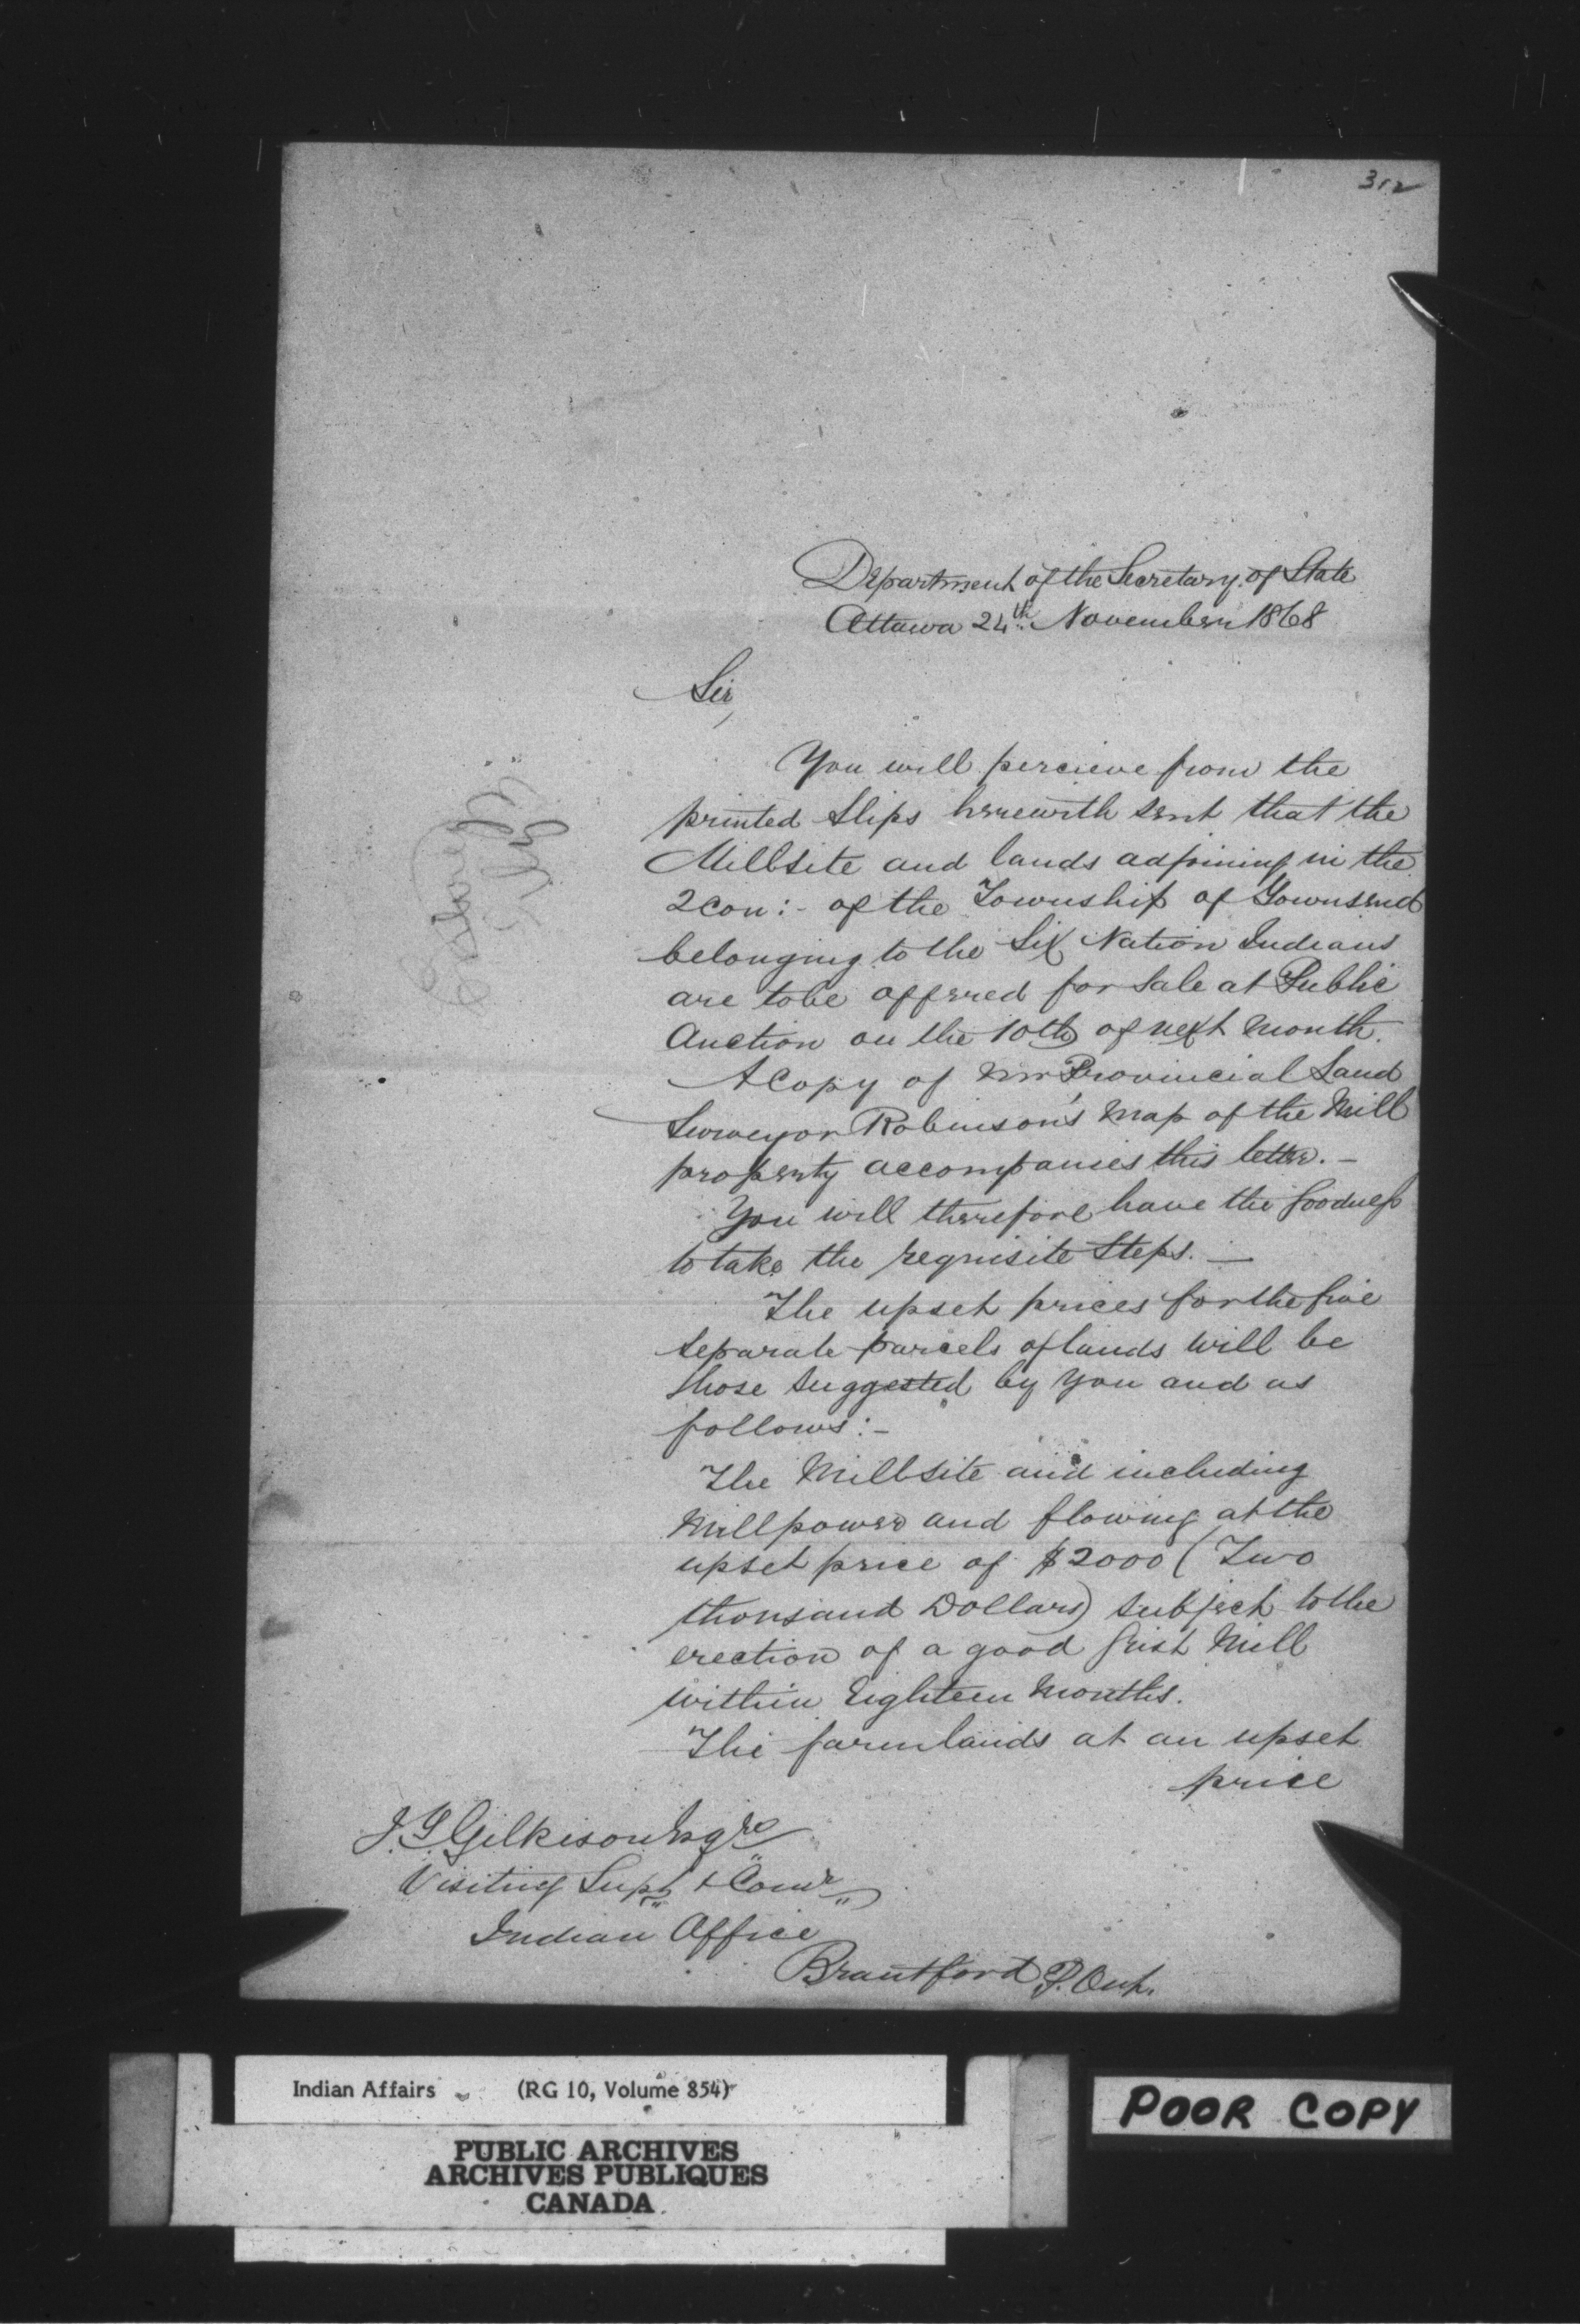 312
Department of the Secretary of State
Ottawa 24th November 1868
Sir,
You will percieve from the
printed slips herewith sent that the
Millsite and lands adjoining in the
2 Con:- of the Township of Townsend
belonging to the Six Nation Indians
are to be offered for sale at Public
Auction on the 10th of next month.
A Copy of Mr Provincial Land
Surveyor Robinson's Map of the Mill
property accompanies this letter. -
You will therefore have the goodness
to take the requisite steps. -
The upset prices for the five
separate parcels of lands will be
those suggested by you and as
follows:-
The Millsite and including
Millpower and flowing at the
upset price of $2000 (Two
thousand Dollars) subject to the
erection of a good Grist Mill
within Eighteen Months.
The farmlands at an upset
price
J. T. Gilkison Esqre
Visiting Supt & Comr
Indian Office
Brantford P. Ont.
Indian Affairs (RG 10, Volume 854)
PUBLIC ARCHIVES
ARCHIVES PUBLIQUES
CANADA
POOR COPY